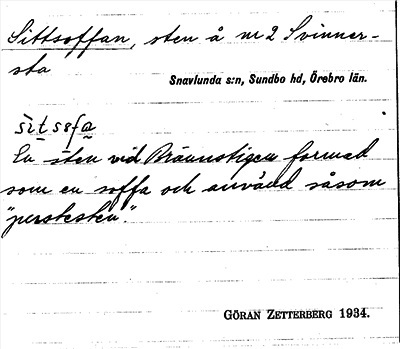 Sittsoffan, sten å nr 2 Svinner-
sta
Snavlunda s:n, Sundbo hd, Örebro län.
En sten vid Brännstigen formad
som en soffa och använd såsom
Göran Zetterberg 1934.